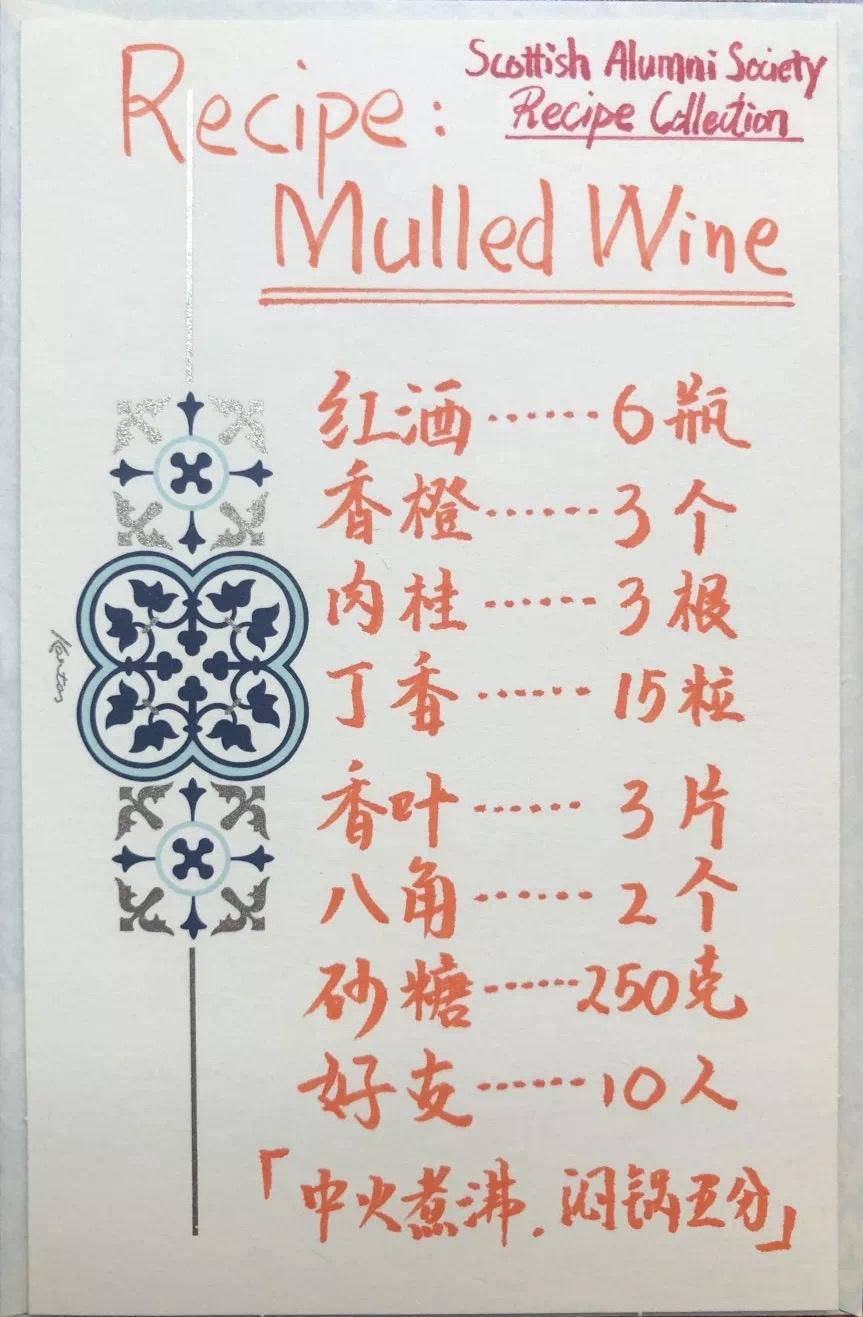 Scottish Alumni Society
Recipe Collection
Recipe:
Mulled Wine
红酒……6瓶
香橙……3个
肉桂……3根
丁香……15粒
香叶……3片
八角……2个
砂糖……250克
好友……10人
「中火煮沸.闷锅五分」